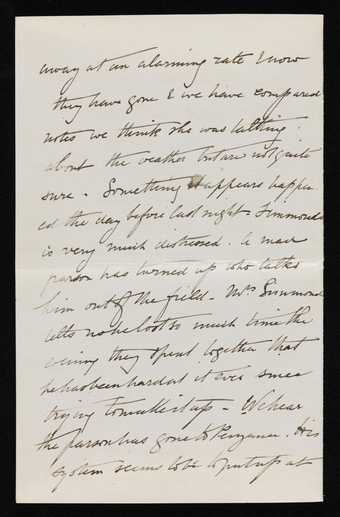 away at an alarming rate & now
they have gone & we have compared
notes we think she was talking
about the weather but are not quite
sure. Something it appears happen
ed the day before last night. Simmonds
is very much distressed. A mad
parson has turned up who talks
him out of the field. Mrs Simmonds
tells us he lost so much time the
evening they spent together that
he has been hard at it ever since
trying to make it up. We hear
the parson has gone to Penzance. His
system seems to be to put up at